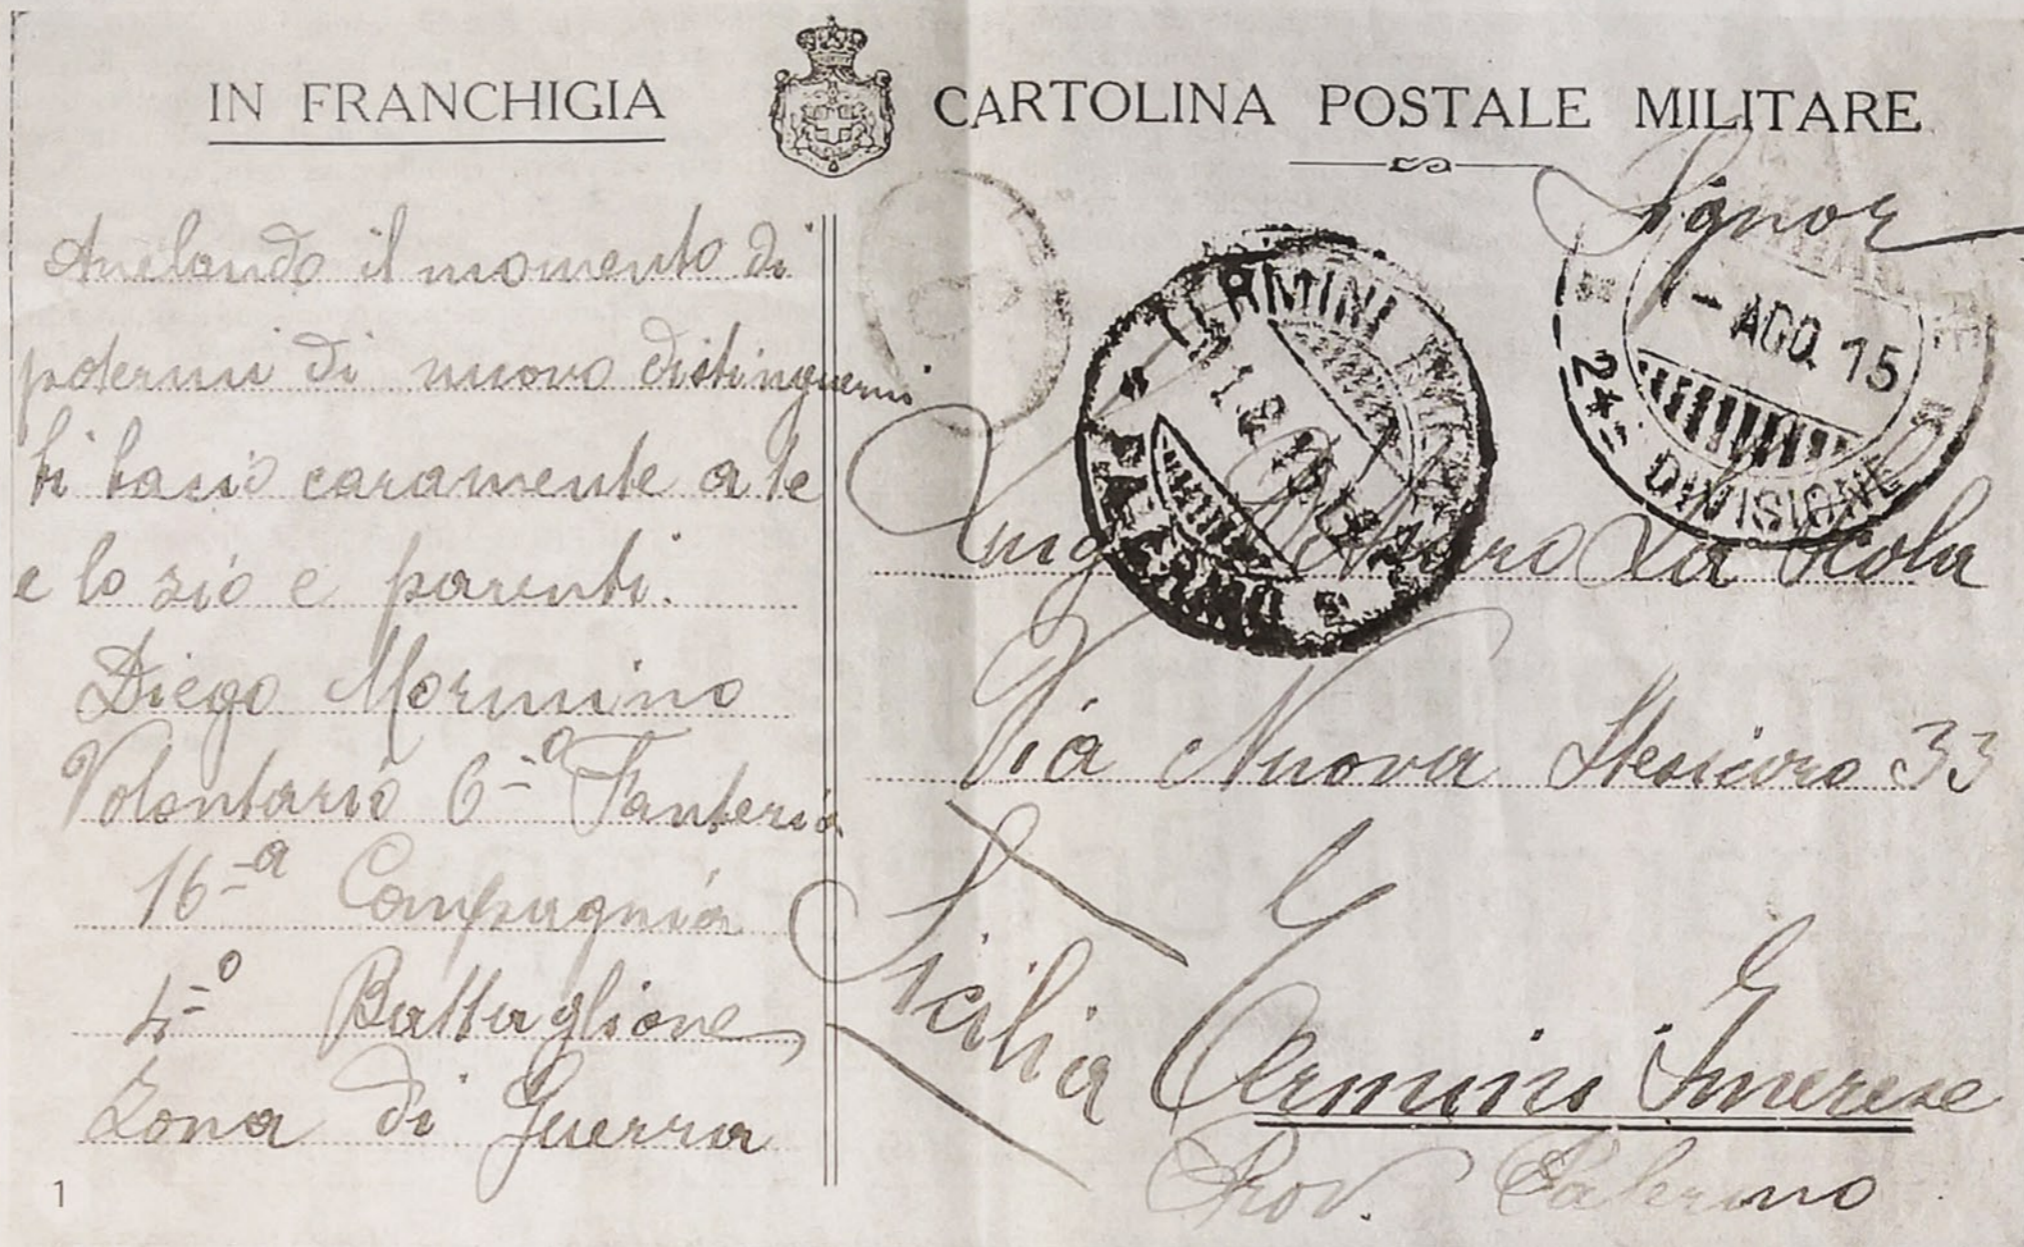 IN FRANCHIGIA
CARTOLINA POSTALE MILITARE
Anelando il momento di
potermi di nuovo distinguermi
ti bacio caramente a te
e lo zio e parenti.
Diego Mormino
Volontario 6-a Fanteria
16-a Compagnia
4-o Battaglione
Zona di Guerra
1
Signor
- AGO. 15
2* DIVISIONE
TERMINI
La Scola
Via Nuova Stesicoro 33
Sicilia
Termini Imerese
Prov. Palermo